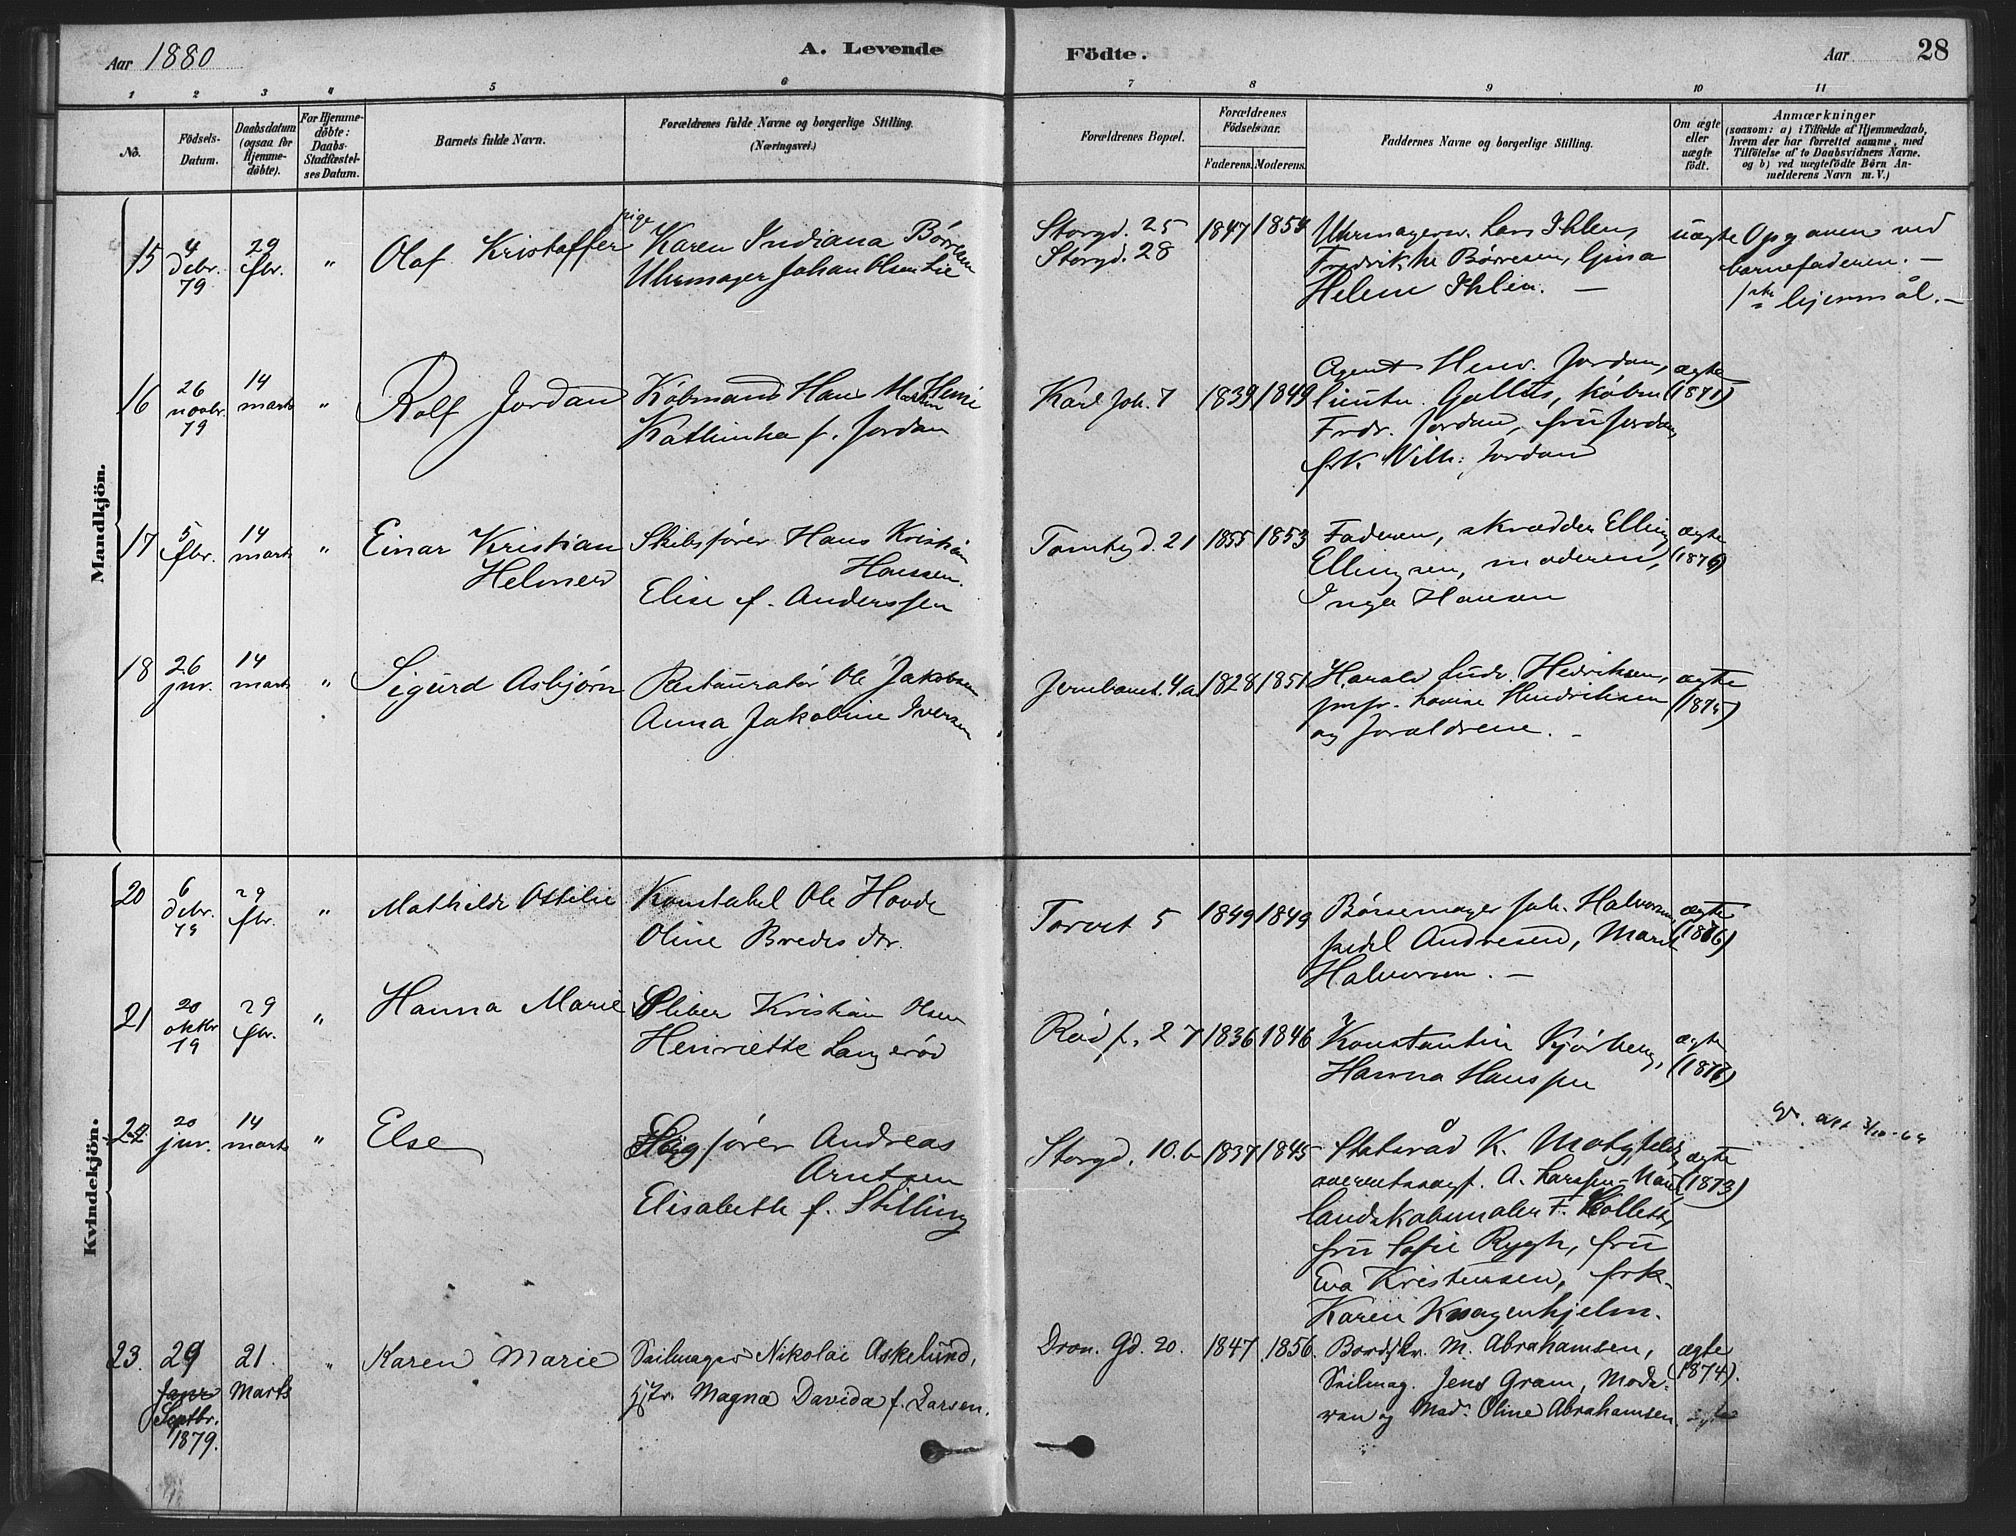 Aar 1880
A. Levende
Födte.
Aar
28
1 2 3 4 5 6 7 8 9 10 11
No.
Födsels-Datum.
Daabsdatum (ogsaa for Hjemme-døbte).
For Hjemme-døbte: Daabs-Stadfæstel-ses Datum.
Barnets fulde Navn.
Forældrenes fulde Navne og borgerlige Stilling.
(Næringsvei.)
Forældrenes Bopæl.
Forældrenes Födselsaar.
Faderens. Moderens.
Faddernes Navne og borgerlige Stilling.
Om ægte eller uægte født.
Anmærkninger
(saasom: a) i Tilfælde af Hjemmedaab,
hvem der har forrettet samme, med
Tilföielse af to Daabsvidners Navne.
og b) ved uægtefödte Börn An-
melderens Navn m. V.)
Mandkjön.
15 4 debr. 79 29 fbr. " Olaf Kristoffer
pige Karen Indiana Børresen
Uhrmager Johan Olsen Lie
Storgd. 25
Storgd. 28
1847 1854
Uhrmagersv. Lars Ihlen,
Fredrikke Børresen, Gina
Helene Ihlen. —
uægte
Opgaven ved
barnefaderen. —
hjemmål. —
16 26 novbr. 79 14 marts " Rolf Jordan
Købmand Hans Martin Henie
Kathinka f. Jordan
Karl Joh. 7
1839 1849
Agent Henr. Jordan,
Frdr. Jordan, fru Jordan,
frk. Vilh. Jordan
ægte (1871)
17 5 fbr. 14 marts " Einar Kristian
Helmer
Skibsfører Hans Kristian
Hanssen.
Elise f. Anderssen
Tomtegd. 21
1855 1853
Faderen, skrædder Elling
Ellingsen, moderen,
Inga Hansen
ægte (1876)
18 26 jnr. 14 marts " Sigurd Asbjørn
Restauratør Ole Jakobsen
Anna Jakobine Iversen
Jernbanet. 4.a
1828 1851
Harald Ludv. Hedriksen,
jmfr. Lovise Hendriksen
og forældrene. —
ægte (1875)
Kvindekjön.
20 6 debr. 79 29 fbr. " Mathilde Ottilie
Konstabel Ole Hovde
Oline Bredesdtr.
Torvet 5
1849 1849
Børsemager Joh. Halvorsen,
pedel Andresen, Marit
Halvorsen. —
ægte (1876)
21 20 oktbr 79 29 fbr. " Hanna Marie
Sliber Kristian Olsen
Henriette Langerød
Rådf. 27
1836 1846
Konstantin Bjørberg,
Hanna Hanssen
ægte
22 20 jnr. 14 marts " Else
Sagfører Andreas
Arntsen
Elisabeth f. Stilling
Storgd. 10.b
1837 1845
Statsråd K. Motzfeldt,
overretssagf. A. Larssen-Naur
landskabsmaler F. Kollett,
fru Sofie Rygh, fru
Eva Kristensen, frk.
Karen Knagenhjelm.
ægte (1873)
23. 29 Janr Septbr. 1879. 21. Marts " Karen Marie
Seilmager Nikolai Askelund,
Hstr. Magna Davida f. Larsen.
Dron. Gd. 20.
1847 1856.
Bordskr. M. Abrahamsen,
Seilmag. Jens Gram, Mode-
ren og Mad. Oline Abrahamsen
ægte (1874).